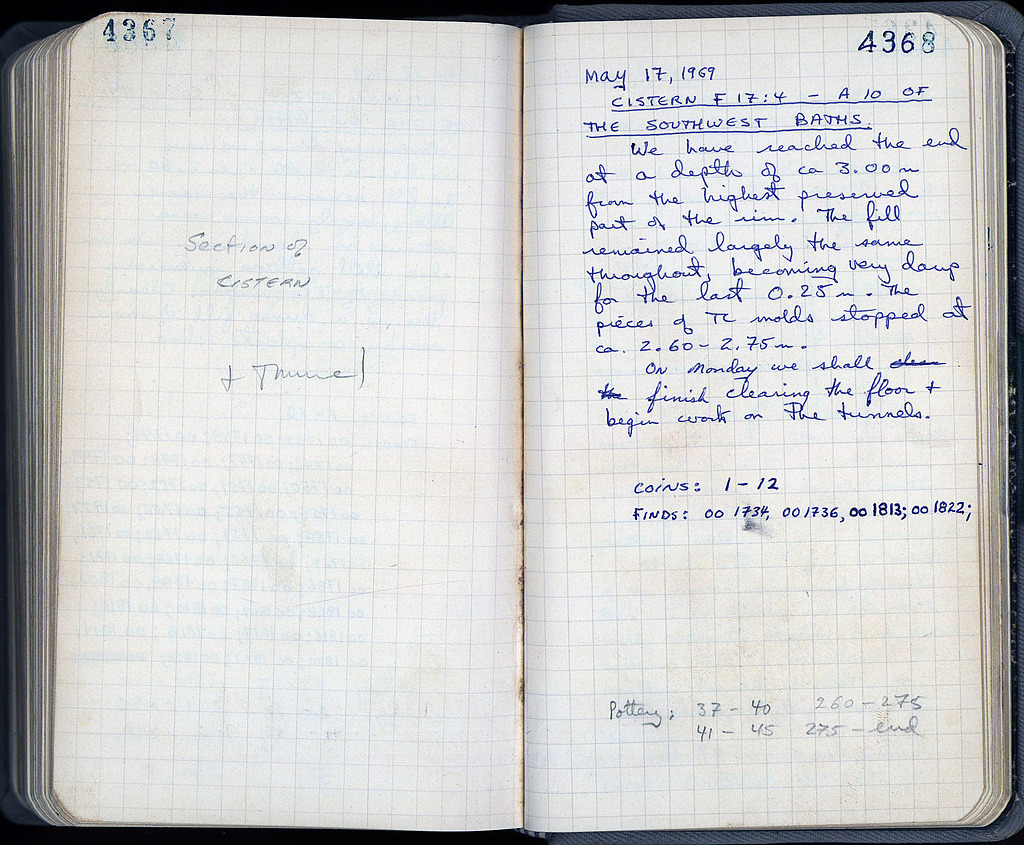 4367
Section of
CISTERN
+ Tunnel
4368
May 17, 1969
CISTERN F 17:4 - A 10 OF
THE SOUTHWEST BATHS.
We have reached the end
at a depth of ca 3.00 m
from the highest preserved
part of the rim. The fill
remained largely the same
throughout, becoming very damp
for the last 0.25 m. The
pieces of TC molds stopped at
ca. 2.60 - 2.75 m.
On Monday we shall clean
the finish clearing the floor +
begin work on the tunnels.
COINS: 1 - 12
FINDS: oo 1734, oo 1736, oo 1813; oo 1822;
Pottery: 37 - 40 260 - 275
41 - 45 275 - end